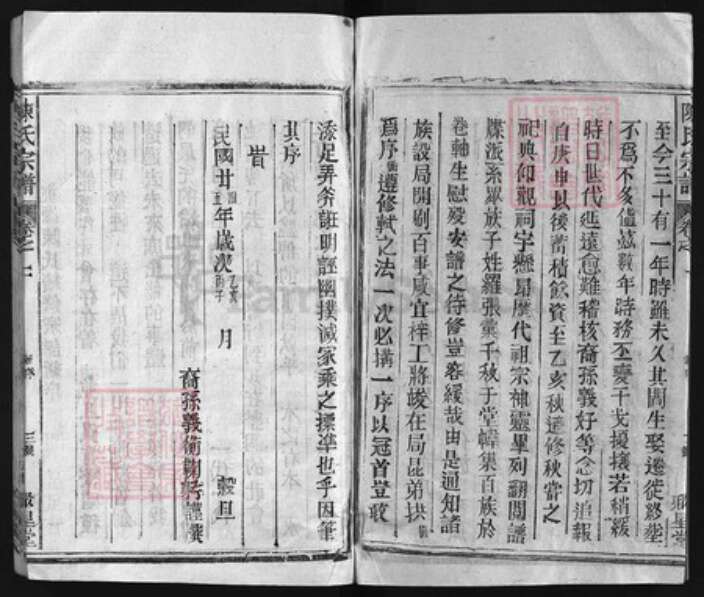 至今三十有一年時雖未久其間生娶遷徙終塋
不爲不多儻茲數年時務丕變干戈擾攘若稍緩
時日世代延遠愈難稽核裔孫義好等念切追報
自庚申以後蓄積餘資至乙亥秋適修秋嘗之
祀典仰觀祠宇懸昂歷代祖宗神靈畢列翻閱譜
牒派系眾族子姓羅張彙千秋于堂幃集百族於
卷軸生慰歿安譜之待修豈容緩哉由是通知諸
族設局開剞百事咸宜梓工將竣在局昆弟拱
爲序遵修弒之法一次必搆一序以冠首登敢
添足弄斧誑明誣幽撲滅冢乘之標準也乎因筆
其序
旹
民國廿四五年歲次乙亥丙子 月 穀旦
裔孫義衡謹撰
陳氏宗譜
卷之一
陳氏宗譜
卷之一
聚星堂